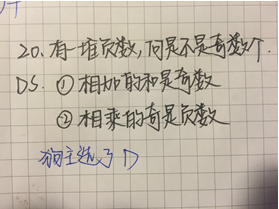 20.有一堆负数,问是不是奇数个.
DS. ①相加的和是奇数
②相乘的奇是负数
狗主选了D